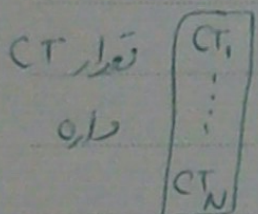 تعداد CT
داده
CT₁
⋮
CT_N